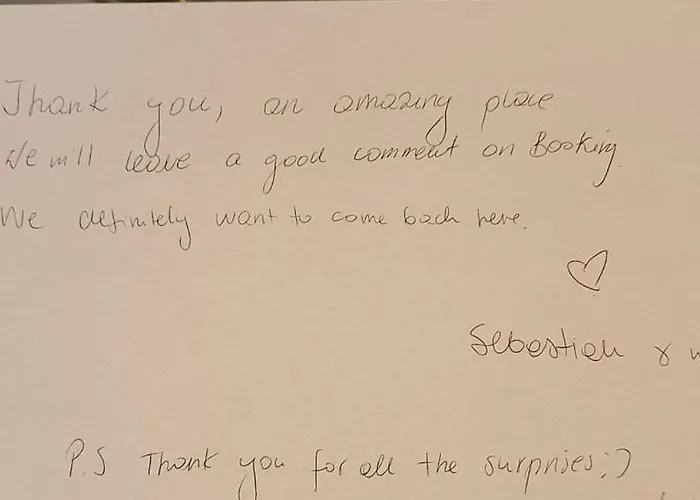 Thank you, an amazing place.
We will leave a good comment on Booking.
We definitely want to come back here.
♡
Sebastian &
P.S Thank you for all the surprises:)